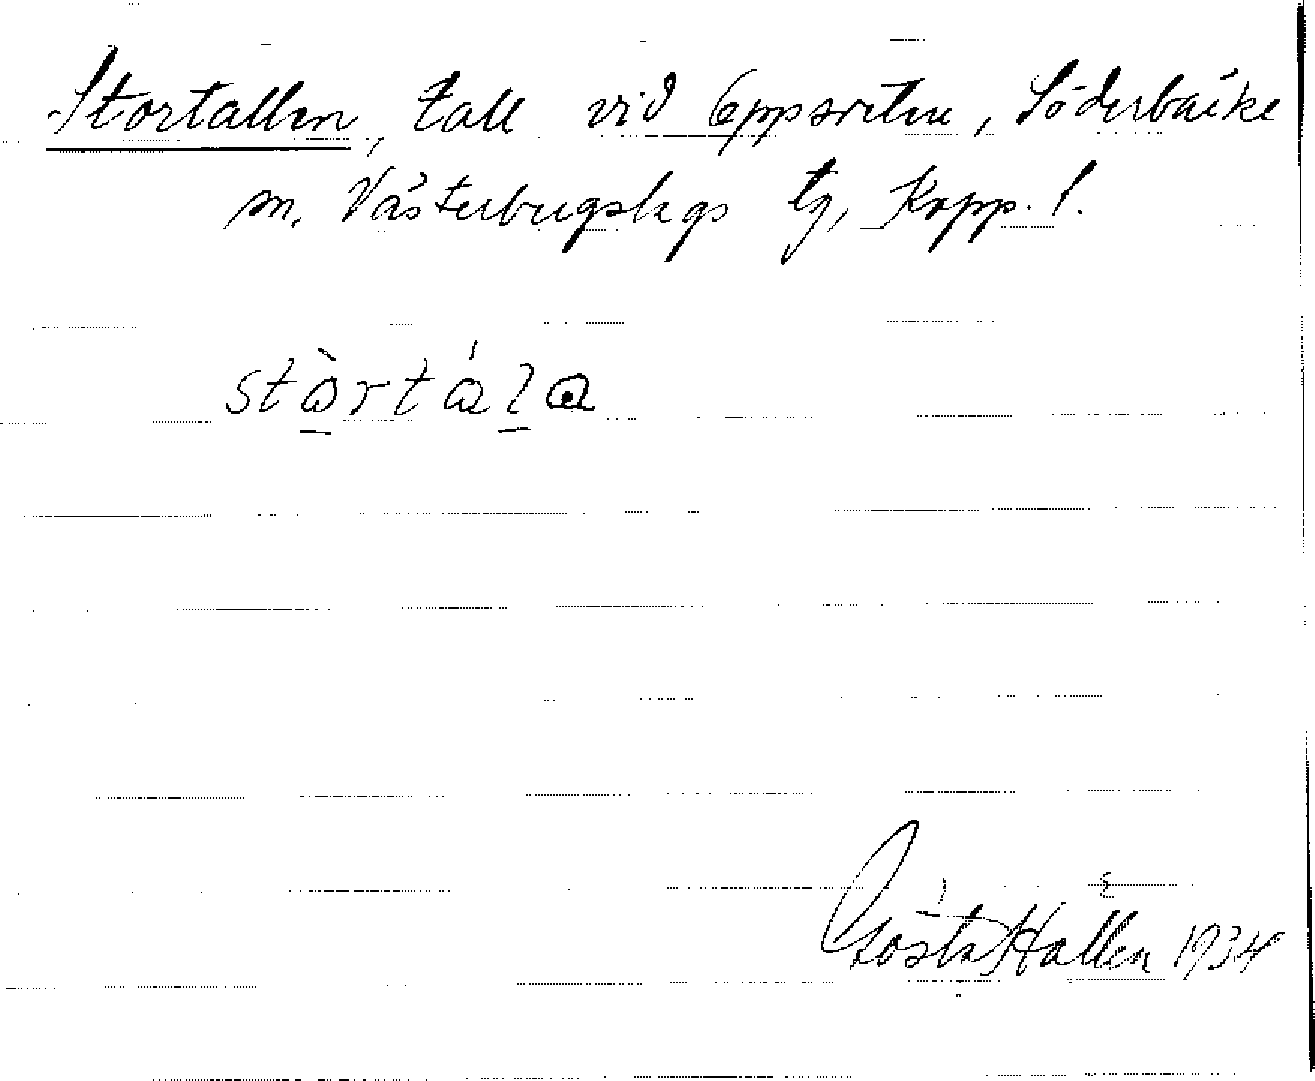 Stortallen, tall vid Oppsveten, Söderbärke
sn. Västerbergslags tg, Kopp. l.
stòrtála
Gösta Hallén 1934